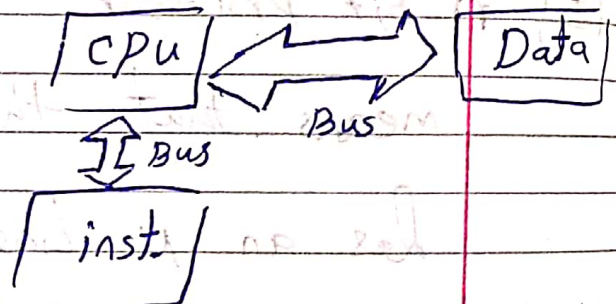 CPU Data
Bus
Bus
inst.